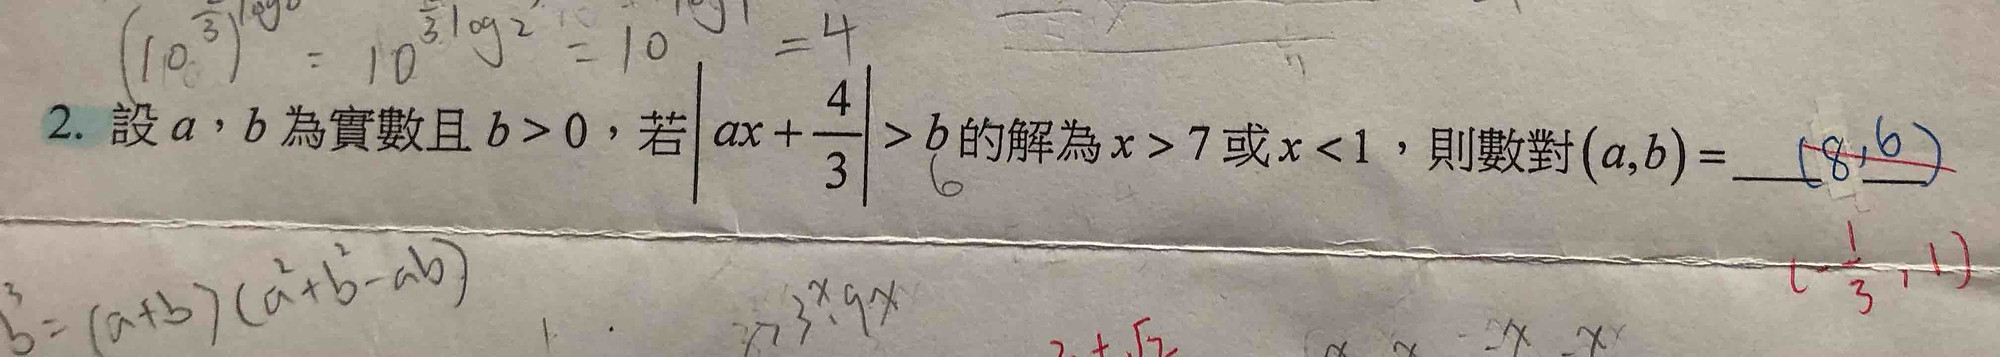 = 10 = 10 = 4
2. 設 a，b 為實數且 b > 0，若 |ax + 4/3| > b 的解為 x > 7 或 x < 1，則數對 (a,b) = (8,6)
6
(-1/3, 1)
b³ = (a+b)(a²+b²-ab)
3ˣ·9x
2+√2